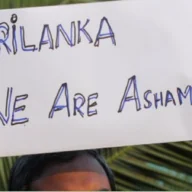 RILANKA
WE ARE ASHAM